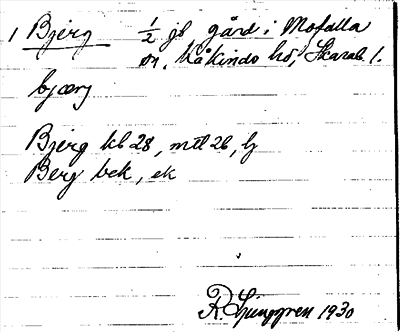 1 Bjerg ½ jb gård i Mofalla
sn. Kåkinds hd, Skarab. l.
bjærj
Bjerg kb 28, mtl 26, lj
Berg bek, ek
R. Ljunggren 1930